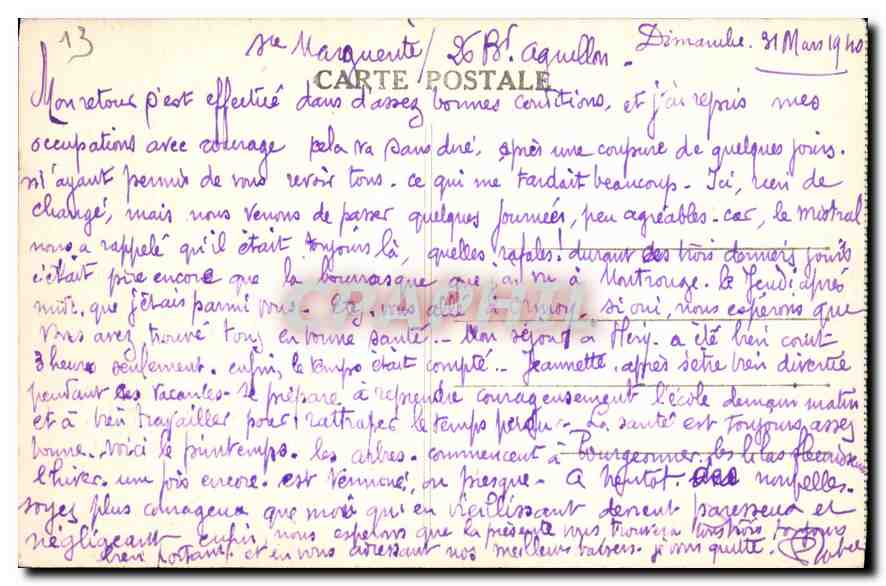 13
Ste Marguerite / 26 Bd. Aguillon. Dimanche. 31 Mars 1940
CARTE POSTALE
Mon retour s'est effectué dans d'assez bonnes conditions, et j'ai repris mes
occupations avec courage cela va sans dire, après une coupure de quelques jours.
m'ayant permis de vous revoir tous. ce qui me tardait beaucoup. Ici, rien de
changé, mais nous venons de passer quelques journées, peu agréables. car, le mistral
nous a rappelé qu'il était toujours là, quelles rafales! durant ces trois derniers jours
c'était pire encore que la bourrasque que j'ai vu à Montrouge. le Jeudi après
midi, que j'étais parmi vous. Etes. vous allé à si oui, nous espérons que
vous avez trouvé tous en bonne santé.. Mon séjour à Hery. a été bien court
3 heures seulement. enfin, le temps était compté.. Jeannette. après s'être bien divertie
pendant ces vacances. se prépare à reprendre courageusement l'école demain matin
et à bien travailler pour rattraper le temps perdu. La santé est toujours assez
bonne. voici le printemps. les arbres. commencent à Bourgeonner. les lilas fleurissent
l'hiver. une fois encore. est terminé, ou presque. A bientôt. des nouvelles.
soyez plus courageux que moi qui en vieillissant devient paresseux et
négligeant enfin, nous espérons que la présente vous trouvera tous trois toujours
bien portant. et en vous adressant nos meilleurs baisers. je vous quitte.